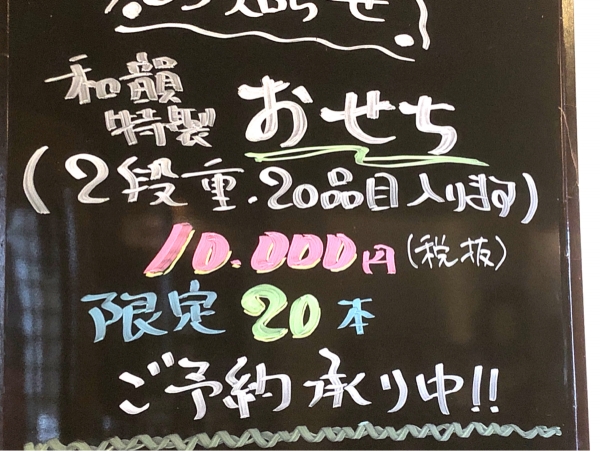 お知らせ
和韻
特製
おせち
(2段重・20品目入ります)
10.000円(税抜)
限定20本
ご予約承り中!!